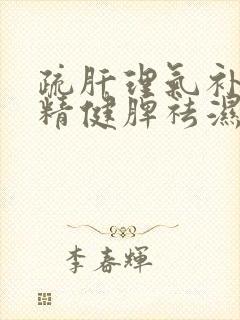 疏肝理氣补
精健脾祛濕
李春輝